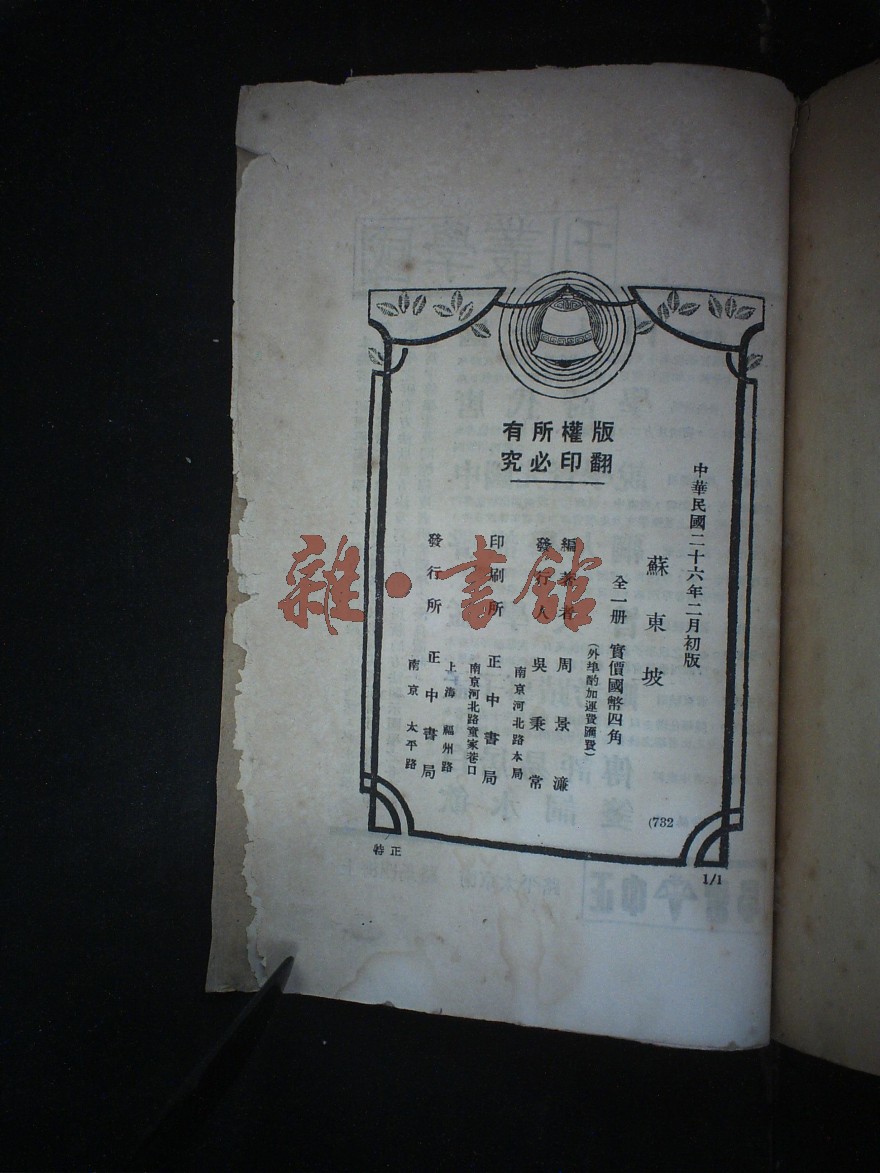 版權所有
翻印必究
中華民國二十六年二月初版
蘇東坡
全一册 實價國幣四角
(外埠酌加運費匯費)
編著者 周景濂
發行人 吳秉常
南京河北路本局
印刷所 正中書局
南京河北路童家巷口
發行所 正中書局
上海福州路
南京太平路
(732
正
1/1
雜·書館